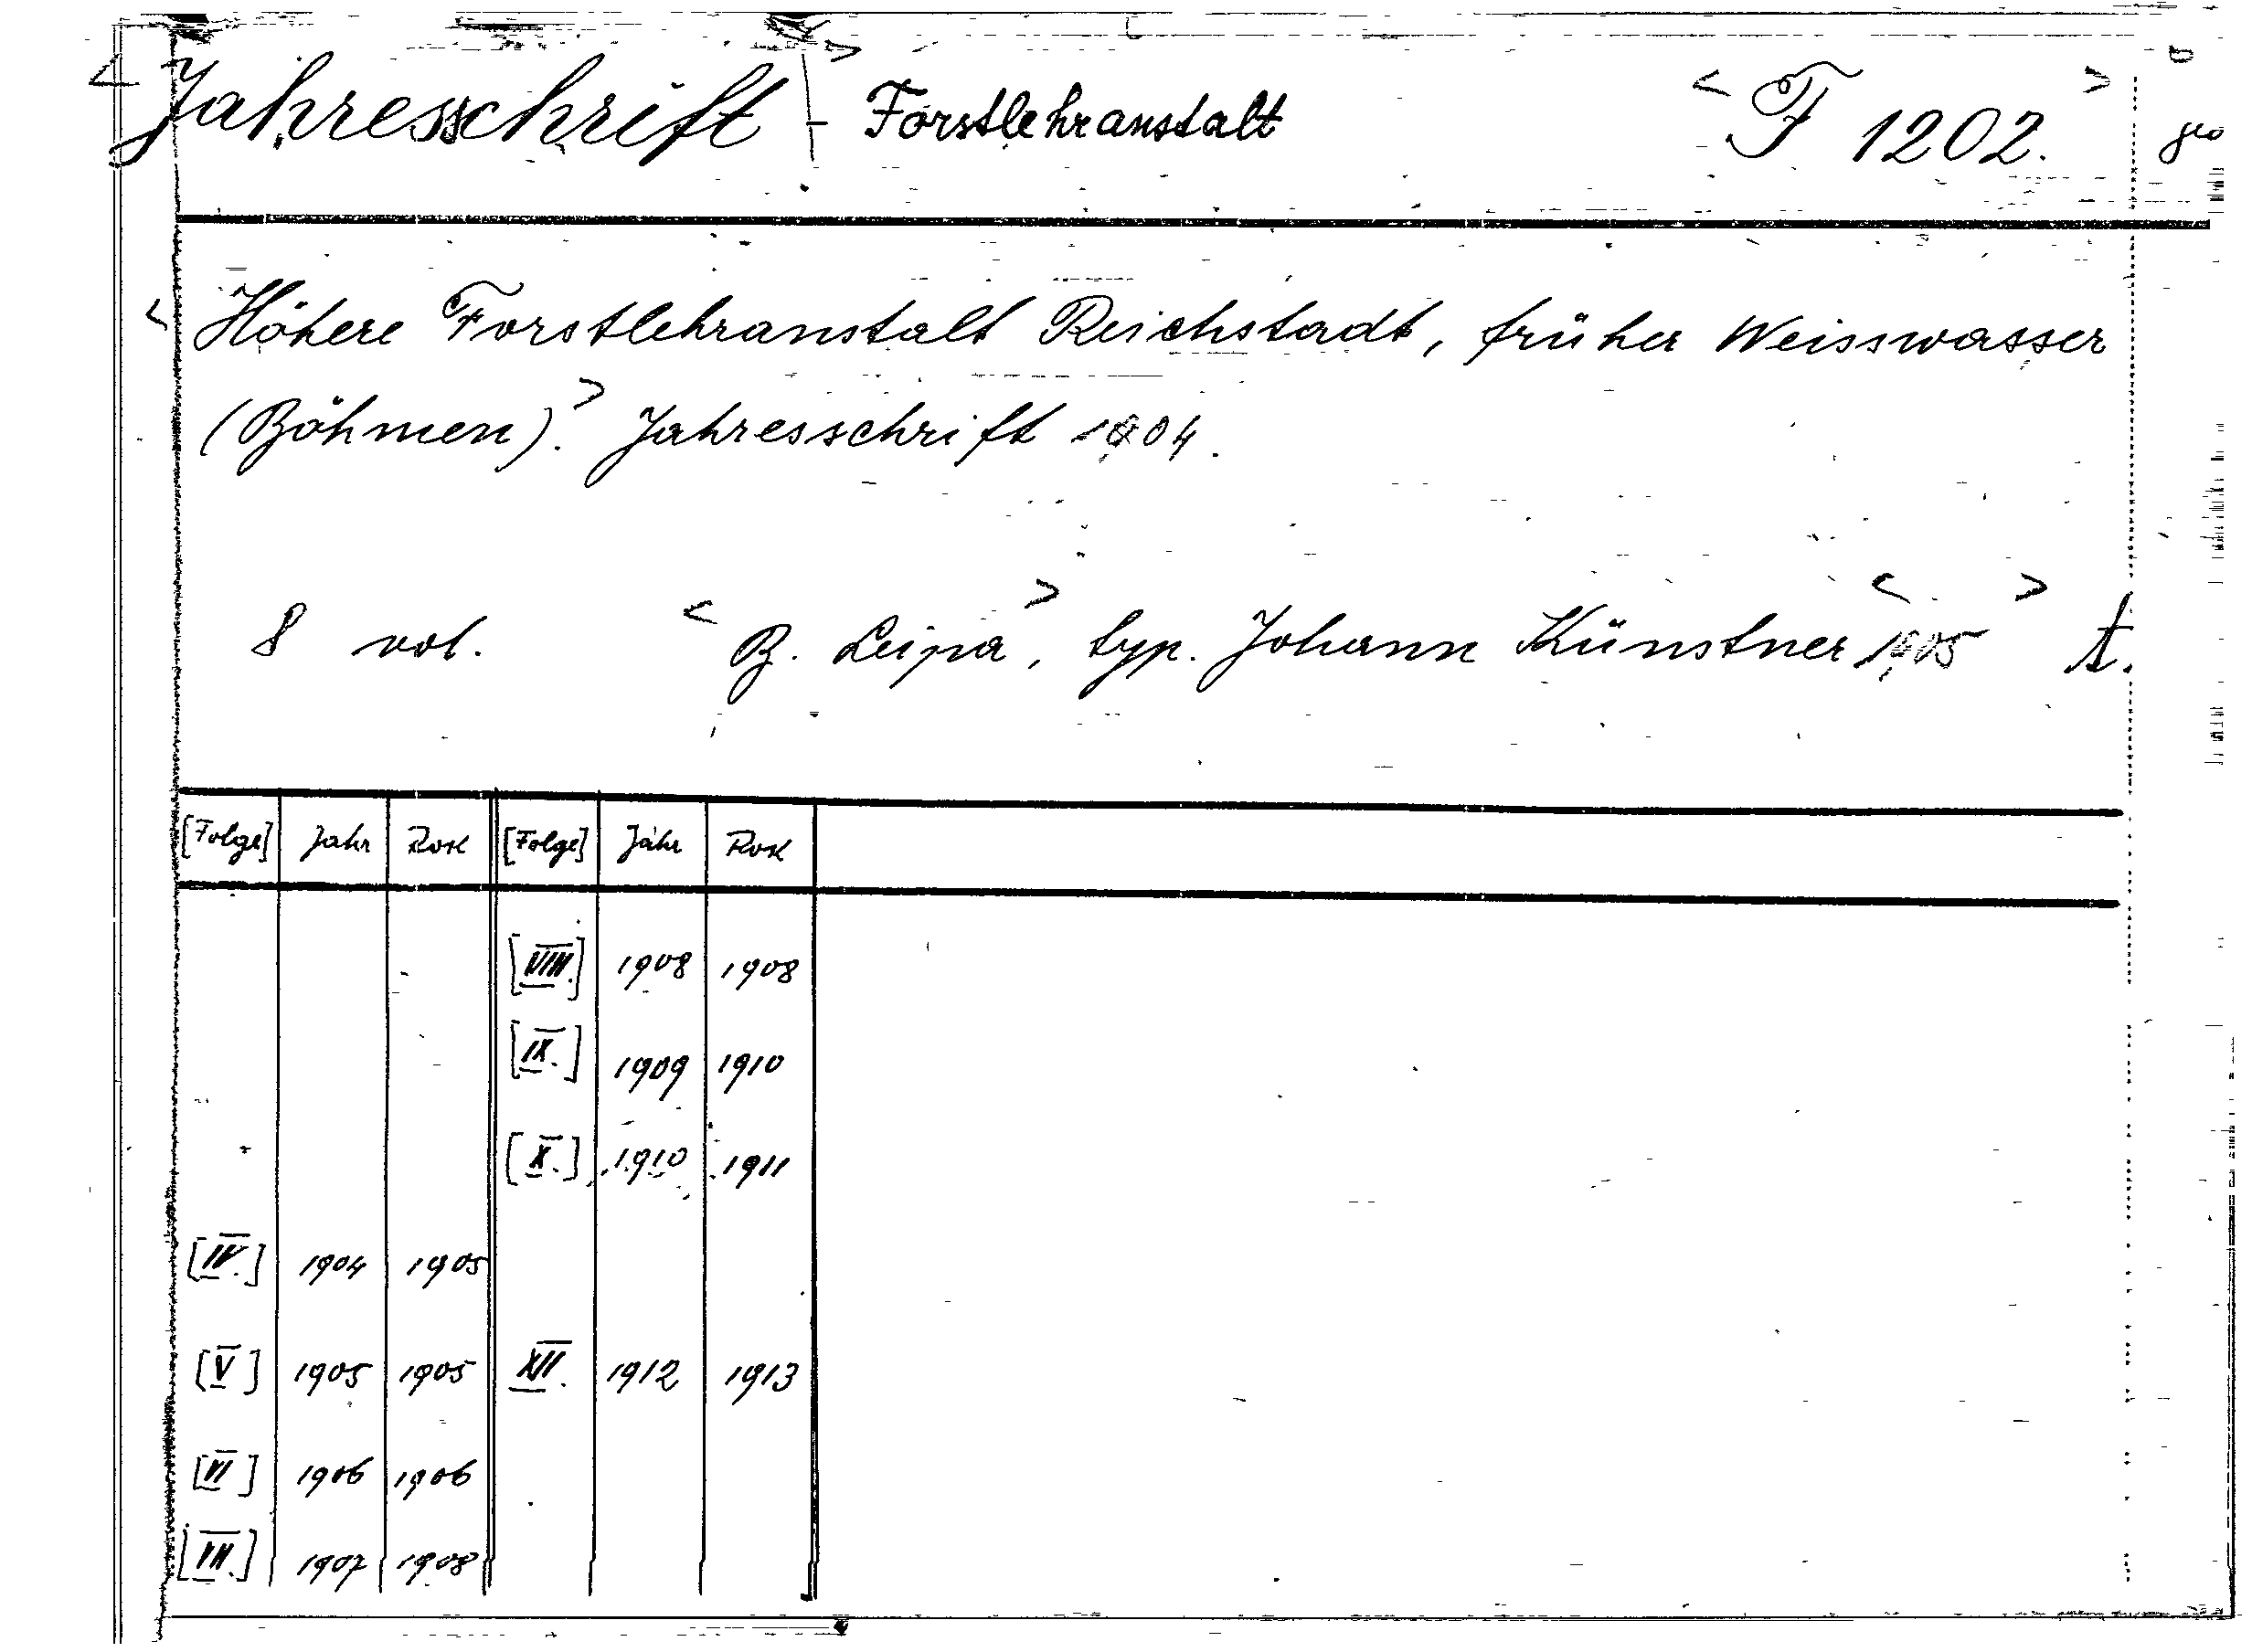 < Jahresschrift > - Forstlehranstalt < F 1202. >
< Höhere Forstlehranstalt Reichstadt, früher Weisswasser
(Böhmen). > Jahresschrift 1904.
8 vol. < B. Leipa >, typ. Johann Künstner < 1905 > A.
[Folge] Jahr Rok [Folge] Jahr Rok
[VIII.] 1908 1908
[IX.] 1909 1910
[X.] 1910 1911
[IV.] 1904 1905
[V] 1905 1905 XII. 1912 1913
[VI] 1906 1906
[VII.] 1907 1908